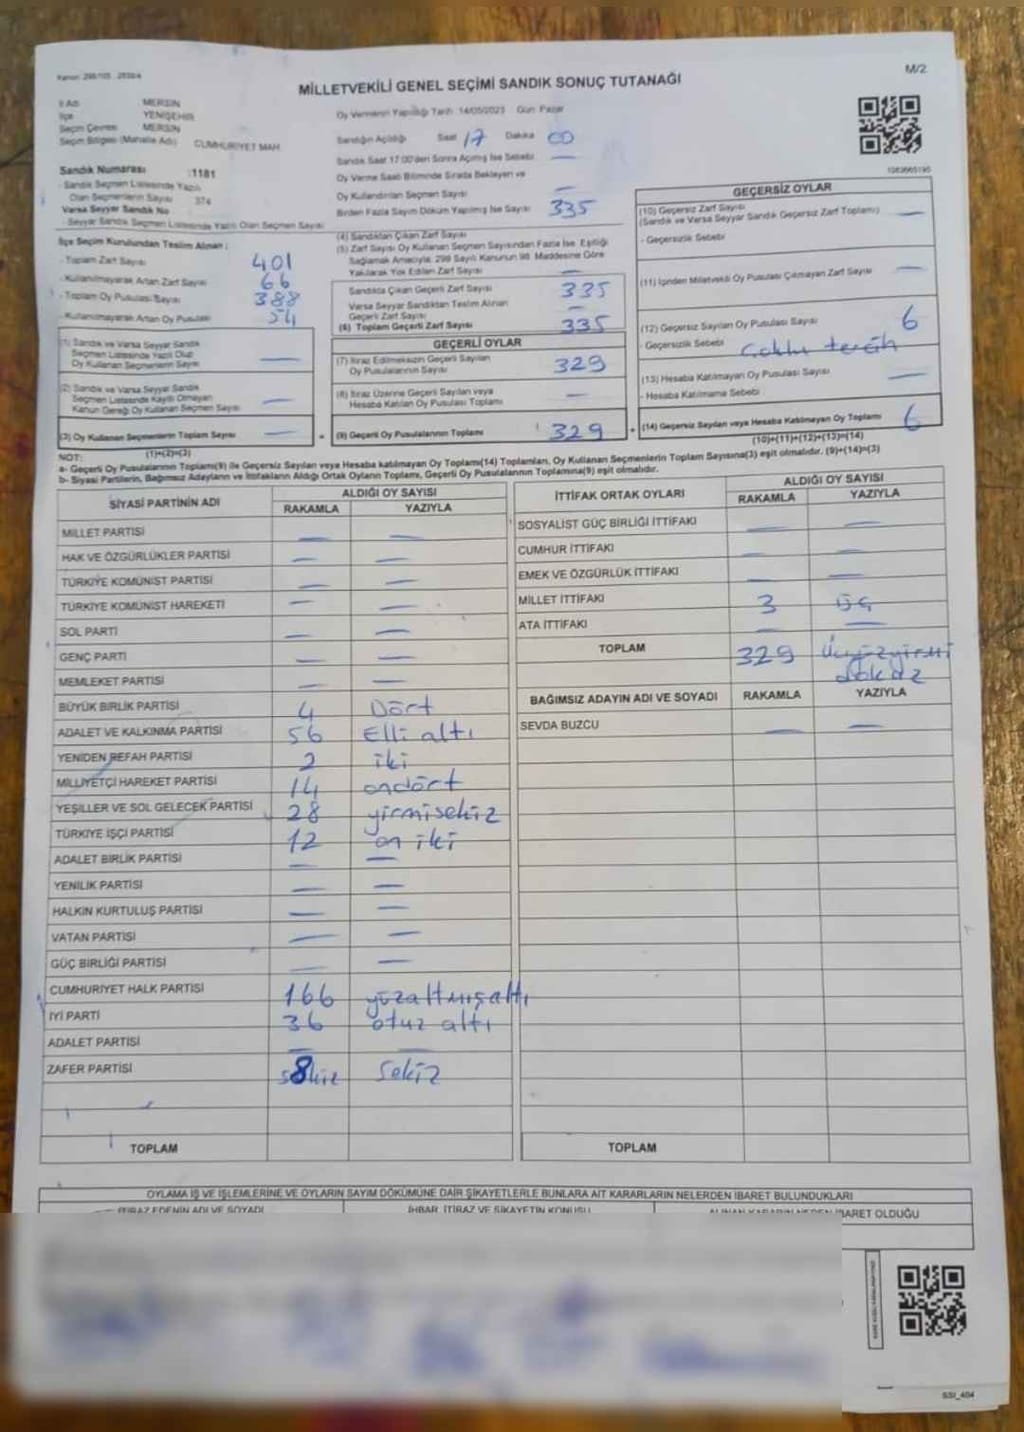 Kanun: 298/105 - 2839/4
M/2
MİLLETVEKİLİ GENEL SEÇİMİ SANDIK SONUÇ TUTANAĞI
İl Adı MERSİN
İlçe YENİŞEHİR
Seçim Çevresi MERSİN
Seçim Bölgesi (Mahalle Adı) CUMHURİYET MAH
Sandık Numarası :1181
- Sandık Seçmen Listesinde Yazılı
Olan Seçmenlerin Sayısı 374
Varsa Seyyar Sandık No
- Seyyar Sandık Seçmen Listesinde Yazılı Olan Seçmen Sayısı
Oy Vermenin Yapıldığı Tarih 14/05/2023 Gün Pazar
Sandığın Açıldığı Saat 17 Dakika 00
Sandık Saat 17:00'den Sonra Açılmış İse Sebebi —
Oy Verme Saati Bitiminde Sırada Bekleyen ve
Oy Kullandırılan Seçmen Sayısı —
Birden Fazla Sayım Döküm Yapılmış İse Sayısı 335
İlçe Seçim Kurulundan Teslim Alınan :
- Toplam Zarf Sayısı 401
- Kullanılmayarak Artan Zarf Sayısı 66
- Toplam Oy Pusulası Sayısı 388
- Kullanılmayarak Artan Oy Pusulası 54
(1) Sandık ve Varsa Seyyar Sandık
Seçmen Listesinde Yazılı Olup
Oy Kullanan Seçmenlerin Sayısı —
(2) Sandık ve Varsa Seyyar Sandık
Seçmen Listesinde Kayıtlı Olmayan
Kanun Gereği Oy Kullanan Seçmen Sayısı —
(3) Oy Kullanan Seçmenlerin Toplam Sayısı —
(1)+(2)=(3)
(4) Sandıktan Çıkan Zarf Sayısı
(5) Zarf Sayısı Oy Kullanan Seçmen Sayısından Fazla İse, Eşitliği
Sağlamak Amacıyla, 298 Sayılı Kanunun 98. Maddesine Göre
Yakılarak Yok Edilen Zarf Sayısı —
Sandıkta Çıkan Geçerli Zarf Sayısı 335
Varsa Seyyar Sandıktan Teslim Alınan
Geçerli Zarf Sayısı —
(6) Toplam Geçerli Zarf Sayısı 335
GEÇERLİ OYLAR
(7) İtiraz Edilmeksizin Geçerli Sayılan
Oy Pusulalarının Sayısı 329
(8) İtiraz Üzerine Geçerli Sayılan veya
Hesaba Katılan Oy Pusulası Toplamı —
(9) Geçerli Oy Pusulalarının Toplamı 329
GEÇERSİZ OYLAR
(10) Geçersiz Zarf Sayısı —
(Sandık ve Varsa Seyyar Sandık Geçersiz Zarf Toplamı)
- Geçersizlik Sebebi
(11) İçinden Milletvekili Oy Pusulası Çıkmayan Zarf Sayısı —
(12) Geçersiz Sayılan Oy Pusulası Sayısı 6
- Geçersizlik Sebebi Çoklu tercih
(13) Hesaba Katılmayan Oy Pusulası Sayısı —
- Hesaba Katılmama Sebebi
(14) Geçersiz Sayılan veya Hesaba Katılmayan Oy Toplamı 6
(10)+(11)+(12)+(13)=(14)
NOT:
a- Geçerli Oy Pusulalarının Toplamı(9) ile Geçersiz Sayılan veya Hesaba katılmayan Oy Toplamı(14) Toplamları, Oy Kullanan Seçmenlerin Toplam Sayısına(3) eşit olmalıdır. (9)+(14)=(3)
b- Siyasi Partilerin, Bağımsız Adayların ve İttifakların Aldığı Ortak Oyların Toplamı, Geçerli Oy Pusulalarının Toplamına(9) eşit olmalıdır.
SİYASİ PARTİNİN ADI ALDIĞI OY SAYISI
RAKAMLA YAZIYLA
MİLLET PARTİSİ — —
HAK VE ÖZGÜRLÜKLER PARTİSİ — —
TÜRKİYE KOMÜNİST PARTİSİ — —
TÜRKİYE KOMÜNİST HAREKETİ — —
SOL PARTİ — —
GENÇ PARTİ — —
MEMLEKET PARTİSİ — —
BÜYÜK BİRLİK PARTİSİ 4 Dört
ADALET VE KALKINMA PARTİSİ 56 Elli altı
YENİDEN REFAH PARTİSİ 2 iki
MİLLİYETÇİ HAREKET PARTİSİ 14 ondört
YEŞİLLER VE SOL GELECEK PARTİSİ 28 yirmisekiz
TÜRKİYE İŞÇİ PARTİSİ 12 on iki
ADALET BİRLİK PARTİSİ — —
YENİLİK PARTİSİ — —
HALKIN KURTULUŞ PARTİSİ — —
VATAN PARTİSİ — —
GÜÇ BİRLİĞİ PARTİSİ — —
CUMHURİYET HALK PARTİSİ 166 yüzaltmışaltı
İYİ PARTİ 36 otuz altı
ADALET PARTİSİ — —
ZAFER PARTİSİ 8 sekiz
TOPLAM
İTTİFAK ORTAK OYLARI ALDIĞI OY SAYISI
RAKAMLA YAZIYLA
SOSYALİST GÜÇ BİRLİĞİ İTTİFAKI — —
CUMHUR İTTİFAKI — —
EMEK VE ÖZGÜRLÜK İTTİFAKI — —
MİLLET İTTİFAKI 3 üç
ATA İTTİFAKI — —
TOPLAM 329 Üçyüzyirmi
dokuz
BAĞIMSIZ ADAYIN ADI VE SOYADI RAKAMLA YAZIYLA
SEVDA BUZCU — —
TOPLAM
OYLAMA İŞ VE İŞLEMLERİNE VE OYLARIN SAYIM DÖKÜMÜNE DAİR ŞİKAYETLERLE BUNLARA AİT KARARLARIN NELERDEN İBARET BULUNDUKLARI
İTİRAZ EDENİN ADI VE SOYADI İHBAR, İTİRAZ VE ŞİKAYETİN KONUSU ALINAN KARARIN NEDEN İBARET OLDUĞU
SSI_404